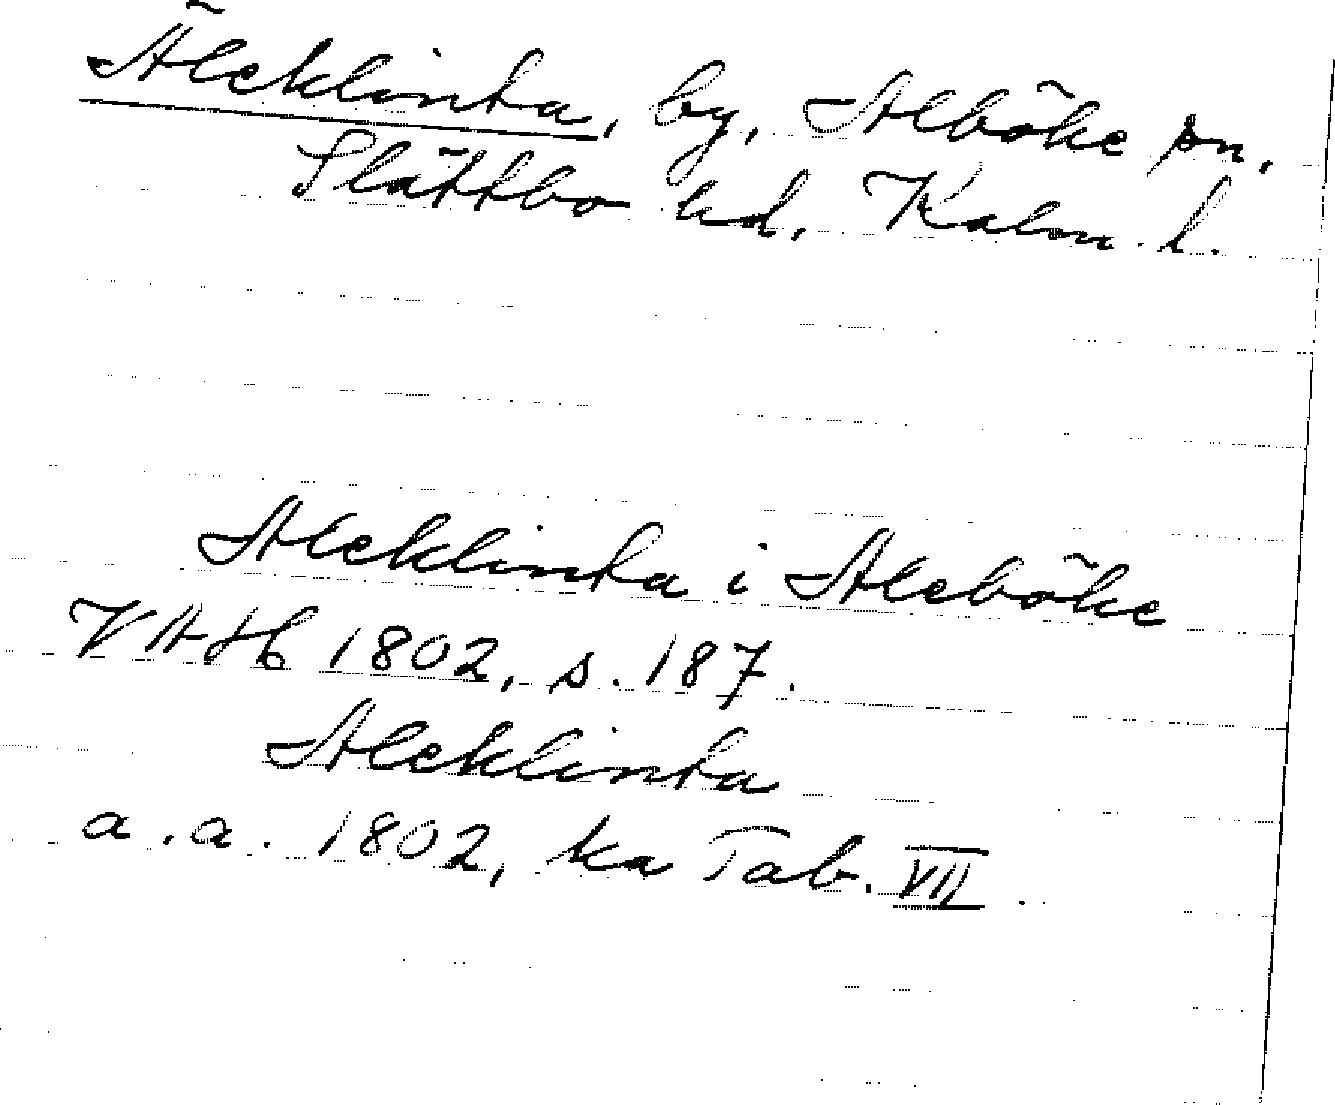 Äleklinta, by, Alböke sn.
Slättbo hd. Kalm. l.
Aleklinta i Aleböke
VAH 1802, s. 187.
Aleklinta
a.a. 1802, ka Tab. VII.